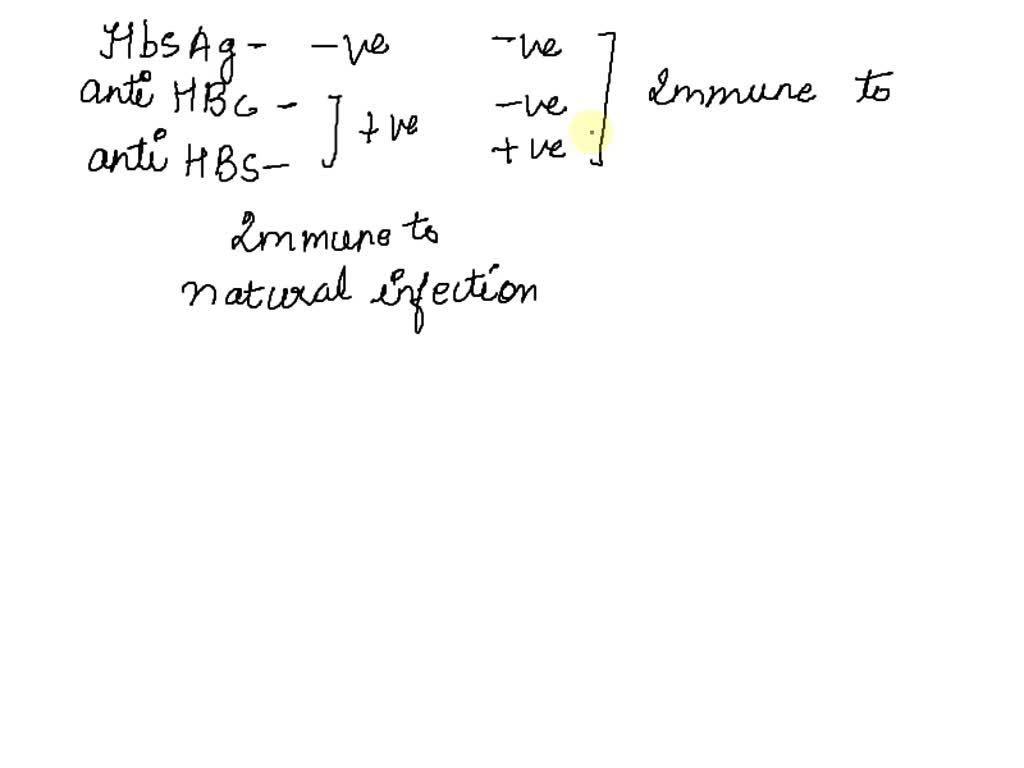 HbsAg - -ve -ve
anti HBC - -ve
] +ve ] Immune to
anti HBS - +ve
Immune to
natural infection